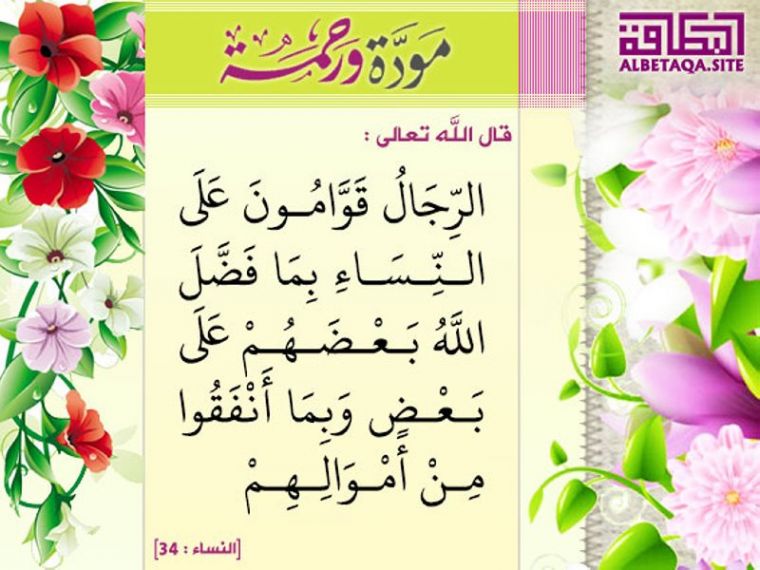 البطاقة
ALBETAQA.SITE
مَوَدَّة وَرَحْمَة
قال اللَّه تعالى :
الرِّجَالُ قَوَّامُونَ عَلَى
النِّسَاءِ بِمَا فَضَّلَ
اللَّهُ بَعْضَهُمْ عَلَى
بَعْضٍ وَبِمَا أَنْفَقُوا
مِنْ أَمْوَالِهِمْ
[النساء : 34]